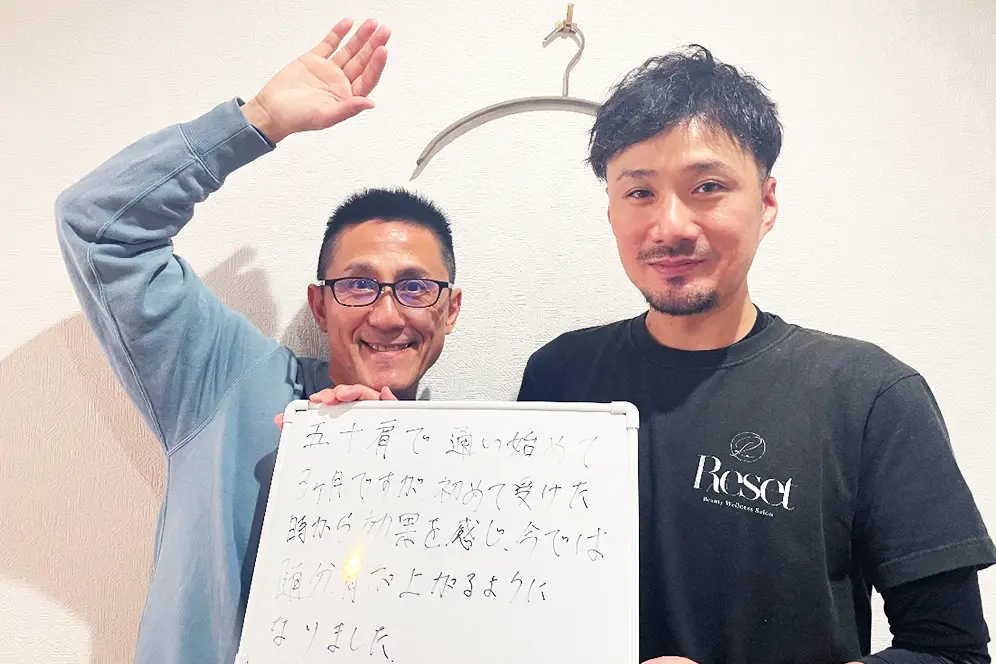 五十肩で通い始めて
3ヶ月ですが初めて受けた
時から効果を感じ、今では
随分肩が上がるように
なりました。
Reset
Beauty Wellness Salon